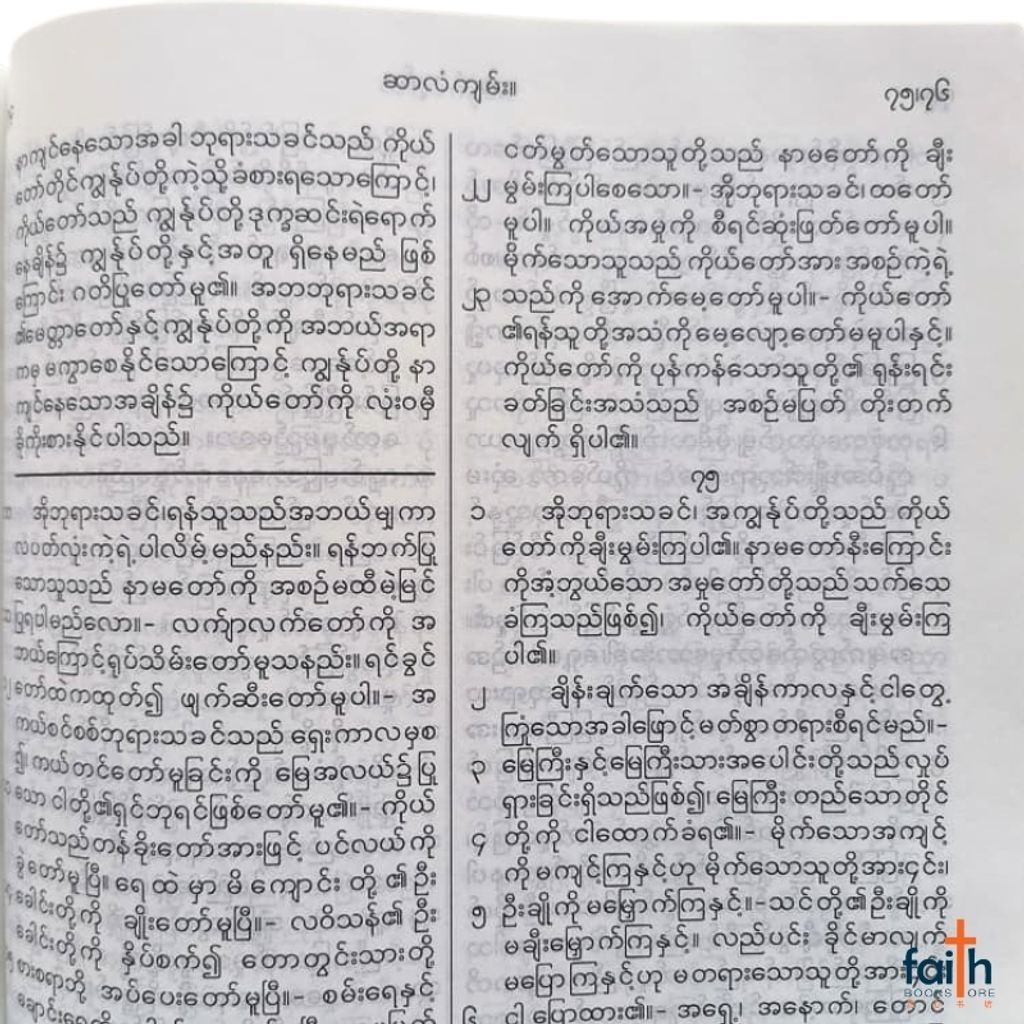 ဆာလံကျမ်း။
၇၅၊၇၆
နာကျင်နေသောအခါ ဘုရားသခင်သည် ကိုယ်
တော်တိုင်ကျွန်ုပ်တို့ကဲ့သို့ခံစားရသောကြောင့်၊
ကိုယ်တော်သည် ကျွန်ုပ်တို့ ဒုက္ခဆင်းရဲရောက်
နေချိန်၌ ကျွန်ုပ်တို့နှင့်အတူ ရှိနေမည် ဖြစ်
ကြောင်း ဂတိပြုတော်မူ၏။ အဘဘုရားသခင်
၏မေတ္တာတော်နှင့်ကျွန်ုပ်တို့ကို အဘယ်အရာ
ကမှ မကွာစေနိုင်သောကြောင့် ကျွန်ုပ်တို့ နာ
ကျင်နေသောအချိန်၌ ကိုယ်တော်ကို လုံးဝမှီ
ခိုကိုးစားနိုင်ပါသည်။
အိုဘုရားသခင်၊ရန်သူသည်အဘယ်မျှကာ
လပတ်လုံးကဲ့ရဲ့ပါလိမ့်မည်နည်း။ ရန်ဘက်ပြု
သောသူသည် နာမတော်ကို အစဉ်မထီမဲ့မြင်
ပြုရပါမည်လော။- လက်ျာလက်တော်ကို အ
ဘယ်ကြောင့်ရုပ်သိမ်းတော်မူသနည်း။ ရင်ခွင်
တော်ထဲကထုတ်၍ ဖျက်ဆီးတော်မူပါ။- အ
ကယ်စင်စစ်ဘုရားသခင်သည် ရှေးကာလမှစ
၍ ကယ်တင်တော်မူခြင်းကို မြေအလယ်၌ ပြု
သော ငါတို့၏ရှင်ဘုရင်ဖြစ်တော်မူ၏။- ကိုယ်
တော်သည်တန်ခိုးတော်အားဖြင့် ပင်လယ်ကို
ခွဲတော်မူပြီ။ ရေ ထဲ မှာ မိ ကျောင်း တို့ ၏ ဦး
ခေါင်းတို့ကို ချိုးတော်မူပြီ။- လဝိသန်၏ ဦး
ခေါင်းတို့ကို နှိပ်စက်၍ တောတွင်းသားတို့
စားစရာဘို့ အပ်ပေးတော်မူပြီ။- စမ်းရေနှင့်
ငတ်မွတ်သောသူတို့သည် နာမတော်ကို ချီး
၂၂ မွမ်းကြပါစေသော။- အိုဘုရားသခင်၊ ထတော်
မူပါ။ ကိုယ်အမှုကို စီရင်ဆုံးဖြတ်တော်မူပါ။
မိုက်သောသူသည် ကိုယ်တော်အား အစဉ်ကဲ့ရဲ့
၂၃ သည်ကို အောက်မေ့တော်မူပါ။- ကိုယ်တော်
၏ရန်သူတို့အသံကိုမေ့လျော့တော်မမူပါနှင့်။
ကိုယ်တော်ကို ပုန်ကန်သောသူတို့၏ ရုန်းရင်း
ခတ်ခြင်းအသံသည် အစဉ်မပြတ် တိုးတက်
လျက် ရှိပါ၏။
၇၅
၁ အိုဘုရားသခင်၊ အကျွန်ုပ်တို့သည် ကိုယ်
တော်ကိုချီးမွမ်းကြပါ၏။ နာမတော်နီးကြောင်း
ကိုအံ့ဘွယ်သော အမှုတော်တို့သည် သက်သေ
ခံကြသည်ဖြစ်၍၊ ကိုယ်တော်ကို ချီးမွမ်းကြ
ပါ၏။
၂ ချိန်းချက်သော အချိန်ကာလနှင့် ငါတွေ့
ကြုံသောအခါဖြောင့်မတ်စွာ တရားစီရင်မည်။-
၃ မြေကြီးနှင့်မြေကြီးသားအပေါင်းတို့သည် လှုပ်
ရှားခြင်းရှိသည်ဖြစ်၍၊ မြေကြီး တည်သောတိုင်
၄ တို့ကို ငါထောက်ခံရ၏။- မိုက်သောအကျင့်
ကို မကျင့်ကြနှင့်ဟု မိုက်သောသူတို့အား၎င်း၊
၅ ဦးချိုကို မမြှောက်ကြနှင့်။-သင်တို့၏ဦးချိုကို
မချီးမြှောက်ကြနှင့်။ လည်ပင်း ခိုင်မာလျက်
မပြောကြနှင့်ဟု မတရားသောသူတို့အား
၆ ငါ ပြောထား၏။- အရှေ့၊ အနောက်၊ တောင်
faith
BOOKSTORE